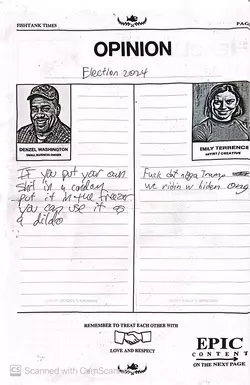 FISHTANK TIMES
OPINION
Election 2024
DENZEL WASHINGTON
SMALL BUSINESS OWNER
EMILY TERRENCE
ARTIST / CREATIVE
If you put your own
shit in a condom
put it in the freezer
You can use it as
a dildo
Fuck dat nigga Trump
we ridin w biden
REMEMBER TO TREAT EACH OTHER WITH
LOVE AND RESPECT
EPIC
CONTENT
ON THE NEXT PAGE
CS Scanned with CamScanner